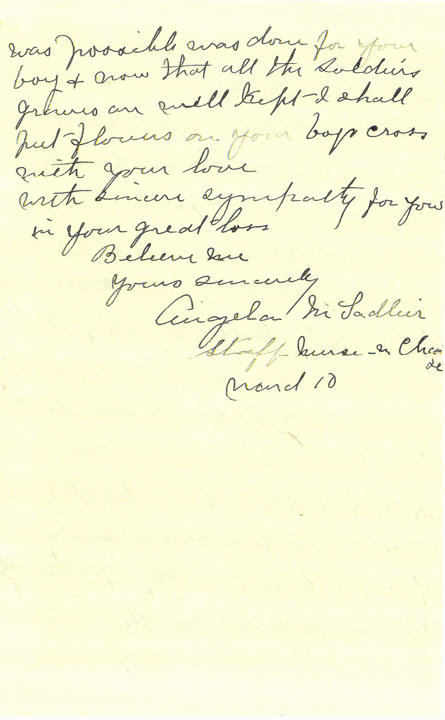 was possible was done for your
boy & now that all the soldiers
graves are well kept I shall
put flowers on your boys cross
with your love
with sincere sympathy for you
in your great loss
Believe me
Yours sincerely
Angela M Sadleir
Staff Nurse in Cha
de
ward 10